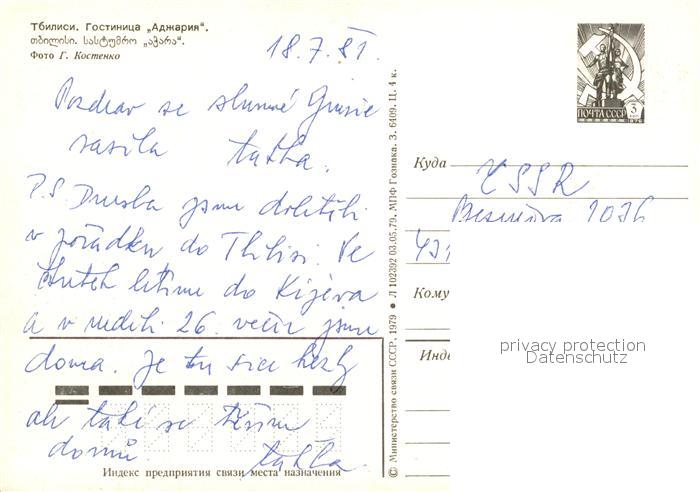 Тбилиси. Гостиница „Аджария".
თბილისი. სასტუმრო „აჭარა".
Фото Г. Костенко
18.7.81.
Pozdrav ze slunné Gruzie
zasílá taťka.
P.S. Dnes jsme doletěli
v pořádku do Tbilisi. Ve
čtvrtek letíme do Kijeva
a v neděli 26. večer jsme
doma. Je tu sice hezky
ale také se těším
domů. taťka.
Индекс предприятия связи места назначения
© Министерство связи СССР, 1979 ● Л 102202 03.05.79. МПФ Гознака. З. 6409. Ц. 4 к.
ПОЧТА СССР 3
Куда
ČSSR
1036
431
Кому
Инде
privacy protection
Datenschutz